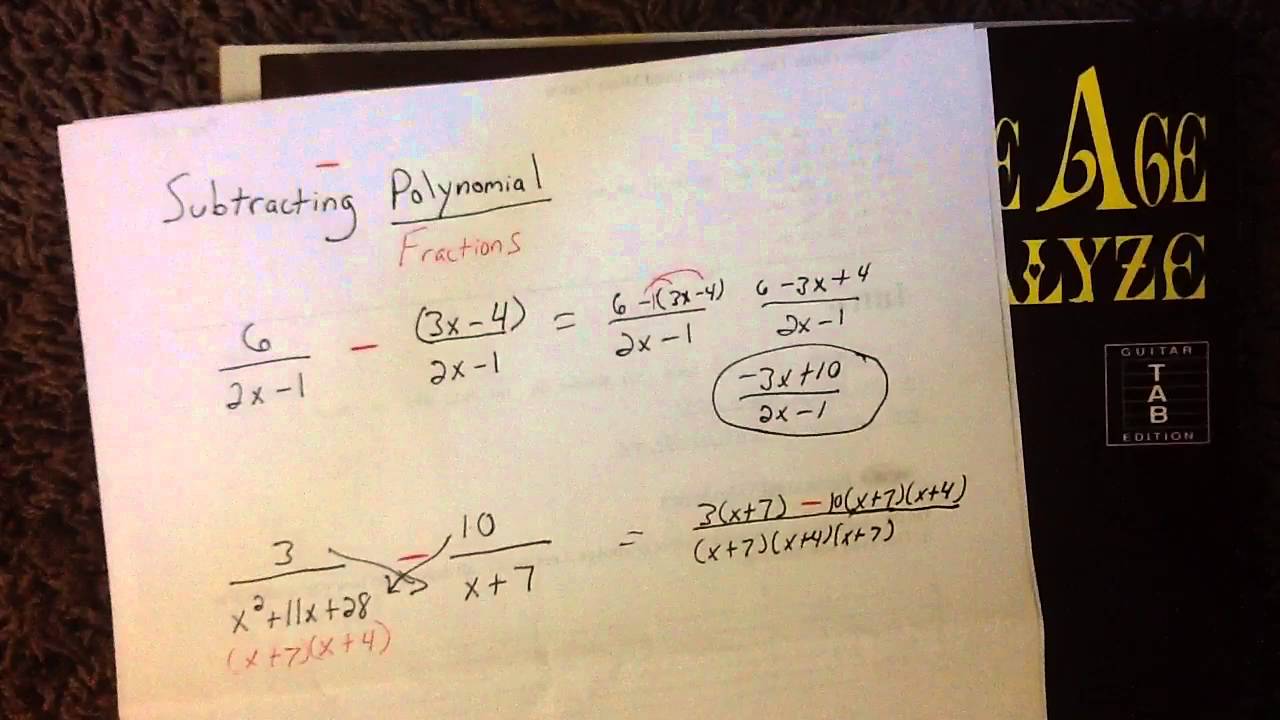 Subtracting Polynomial
Fractions
6/(2x-1) - (3x-4)/(2x-1) = (6-1(3x-4))/(2x-1) (6-3x+4)/(2x-1)
(-3x+10)/(2x-1)
3/(x²+11x+28) - 10/(x+7) = (3(x+7) - 10(x+7)(x+4))/((x+7)(x+4)(x+7))
(x+7)(x+4)
E AGE
ALYZE
GUITAR
TAB
EDITION